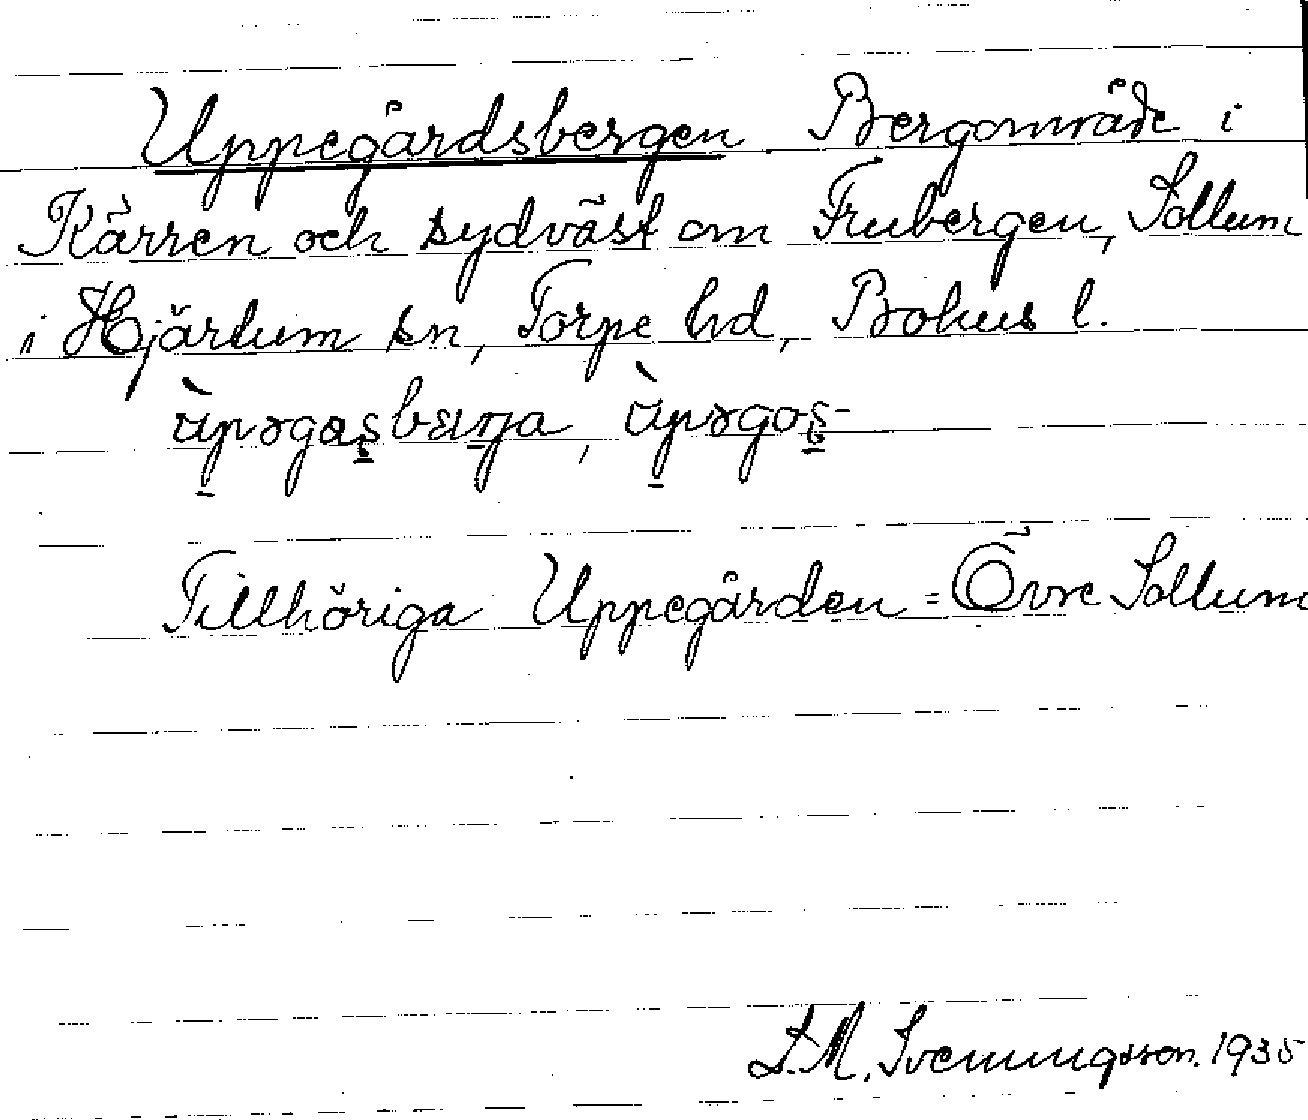 Uppegårdsbergen Bergområde i
Kärren och sydväst om Frubergen, Sollum
i Hjärtum sn, Torpe hd, Bohus l.
Tillhöriga Uppegården = Övre Sollum
S.M. Svenningsson. 1935